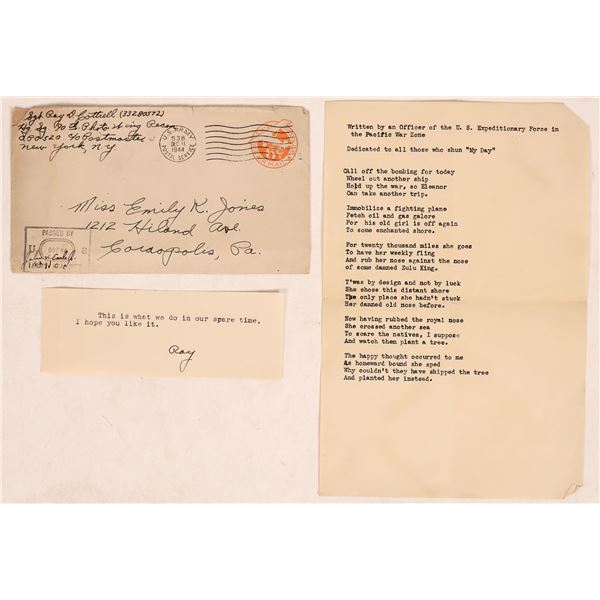 Sgt Ray D. Cottrell (33280572)
Hq Sq 90th Photo Wing Recon
APO 520 c/o Postmaster
New York, N.Y.
U.S. ARMY
538
DEC 11
1944
POSTAL SERVICE
Miss Emily K. Jones
1212 Hiland Ave.
Coraopolis, Pa.
PASSED BY
U S
This is what we do in our spare time,
I hope you like it.
Ray
Written by an Officer of the U. S. Expeditionary Force in
the Pacific War Zone
Dedicated to all those who shun "My Day"
Call off the bombing for today
Wheel out another ship
Hold up the war, so Eleanor
Can take another trip.
Immobilize a fighting plane
Fetch oil and gas galore
For his old girl is off again
To some enchanted shore.
For twenty thousand miles she goes
To have her weekly fling
And rub her nose against the nose
of some damned Zulu King.
T'was by design and not by luck
She chose this distant shore
The only place she hadn't stuck
Her damned old nose before.
Now having rubbed the royal nose
She crossed another sea
To scare the natives, I suppose
And watch them plant a tree.
The happy thought occurred to me
As homeward bound she sped
Why couldn't they have shipped the tree
And planted her instead.